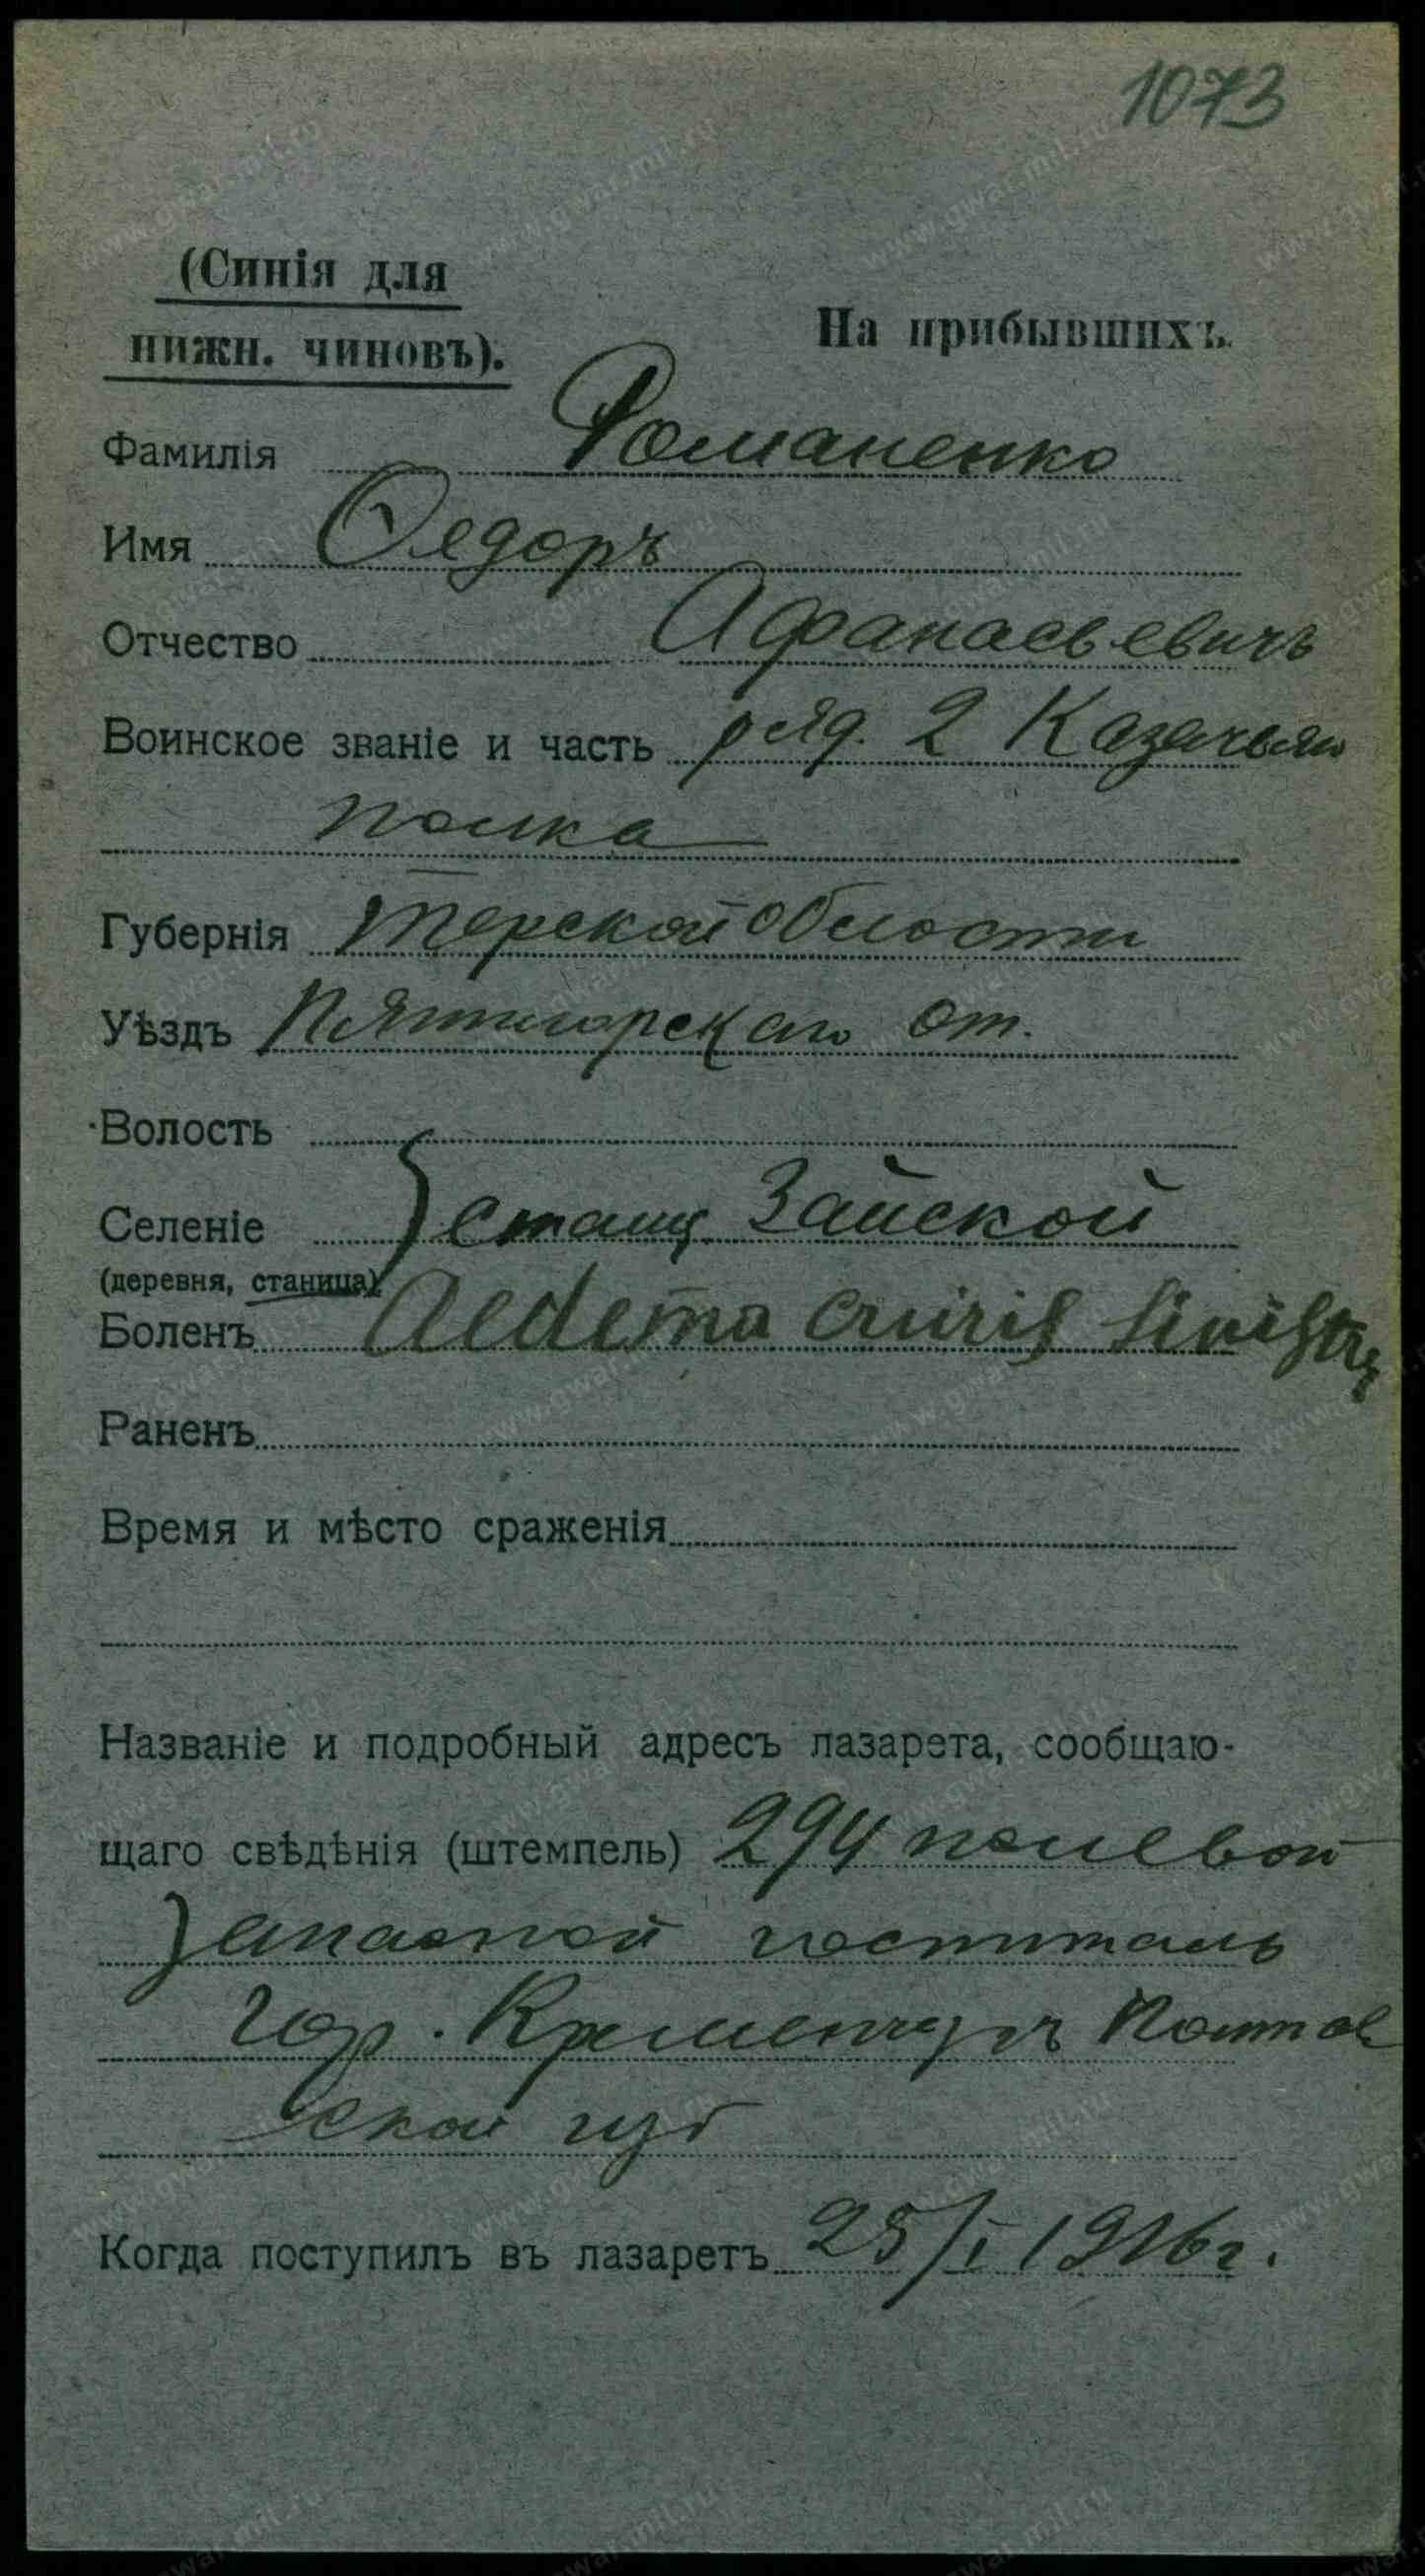 1073
(Синія для
нижн. чиновъ).
На прибывшихъ.
Фамилія Романенко
Имя Ѳедоръ
Отчество Афанасьевичъ
Воинское званіе и часть ряд. 2 Казачьяго
полка
Губернія Терской Области
Уѣздъ Пятигорскаго от.
Волость
Селеніе станц. Зайской
(деревня, станица)
Боленъ Aedema cruris sinistri
Раненъ
Время и мѣсто сраженія
Названіе и подробный адресъ лазарета, сообщаю-
щаго свѣдѣнія (штемпель) 294 полевой
запасной госпиталь
гор. Кременчугъ Полтав
ской губ
Когда поступилъ въ лазаретъ 25/I 1916г.